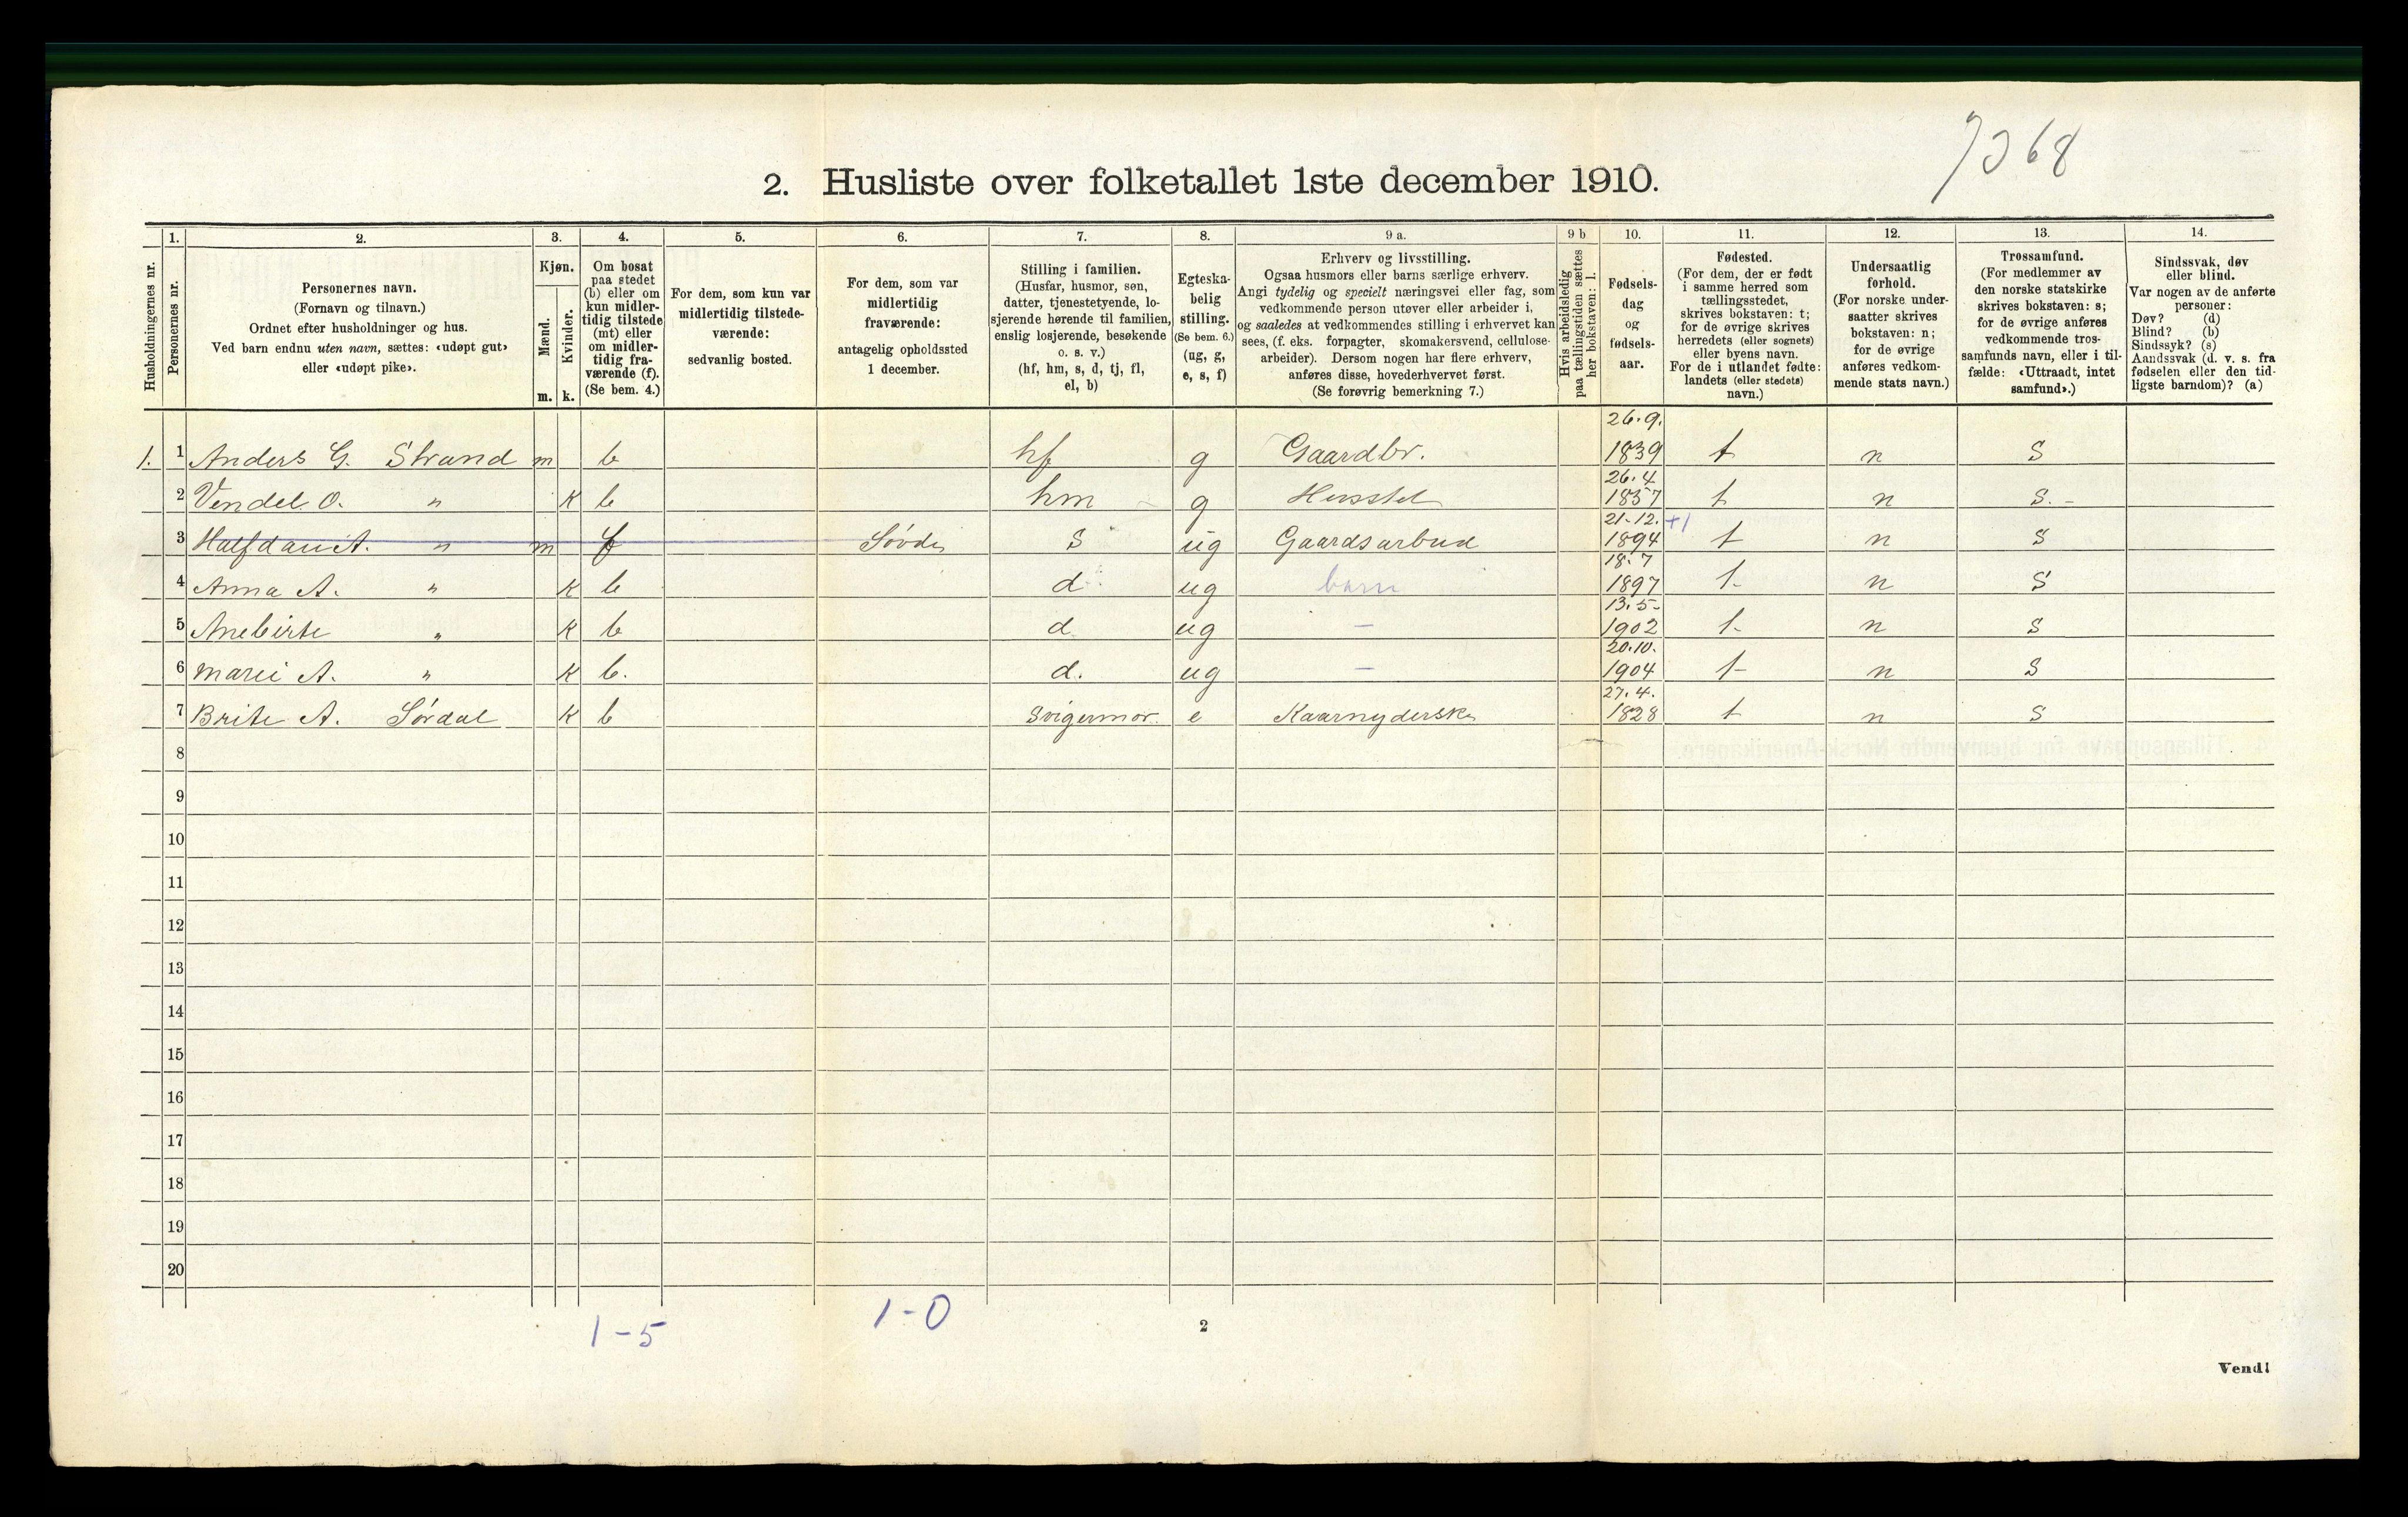 7368
2. Husliste over folketallet 1ste december 1910.
Husholdningernes nr.
1.
Personernes nr.
2.
Personernes navn.
(Fornavn og tilnavn.)
Ordnet efter husholdninger og hus.
Ved barn endnu uten navn, sættes: «udøpt gut»
eller «udøpt pike».
3.
Kjøn.
Mænd.
Kvinder.
m. k.
4.
Om bosat
paa stedet
(b) eller om
kun midler-
tidig tilstede
(mt) eller
om midler-
tidig fra-
værende (f).
(Se bem. 4.)
5.
For dem, som kun var
midlertidig tilstede-
værende:
sedvanlig bosted.
6.
For dem, som var
midlertidig
fraværende:
antagelig opholdssted
1 december.
7.
Stilling i familien.
(Husfar, husmor, søn,
datter, tjenestetyende, lo-
sjerende hørende til familien,
enslig losjerende, besøkende
o. s. v.)
(hf, hm, s, d, tj, fl,
el, b)
8.
Egteska-
belig
stilling.
(Se bem. 6.)
(ug, g,
e, s, f)
9 a.
Erhverv og livsstilling.
Ogsaa husmors eller barns særlige erhverv.
Angi tydelig og specielt næringsvei eller fag, som
vedkommende person utøver eller arbeider i,
og saaledes at vedkommendes stilling i erhvervet kan
sees, (f. eks. forpagter, skomakersvend, cellulose-
arbeider). Dersom nogen har flere erhverv,
anføres disse, hovederhvervet først.
(Se forøvrig bemerkning 7.)
9 b
Hvis arbeidsledig
paa tællingstiden sættes
her bokstaven: l.
10.
Fødsels-
dag
og
fødsels-
aar.
11.
Fødested.
(For dem, der er født
i samme herred som
tællingsstedet,
skrives bokstaven: t;
for de øvrige skrives
herredets (eller sognets)
eller byens navn.
For de i utlandet fødte:
landets (eller stedets)
navn.)
12.
Undersaatlig
forhold.
(For norske under-
saatter skrives
bokstaven: n;
for de øvrige
anføres vedkom-
mende stats navn.)
13.
Trossamfund.
(For medlemmer av
den norske statskirke
skrives bokstaven: s;
for de øvrige anføres
vedkommende tros-
samfunds navn, eller i til-
fælde: «Uttraadt, intet
samfund».)
14.
Sindssvak, døv
eller blind.
Var nogen av de anførte
personer:
Døv? (d)
Blind? (b)
Sindssyk? (s)
Aandssvak (d. v. s. fra
fødselen eller den tid-
ligste barndom)? (a)
1. 1 Anders G. Strand m b hf g Gaardbr. 26.9. 1839 t n S
2 Vendel O. " K b hm g Husstel 26.4 1857 t n S.-
3 Halfdan A. " m f Søvde S ug Gaardsarbud 21-12. 1894 +1 t n S
4 Anna A. " K b d ug barn 18.7 1897 t n S
5 Anebirte " K b d ug - 13.5- 1902 t n S
6 Marii A. " K b. d. ug - 20.10. 1904 t n S
7 Brite A. Sørdal K b Svigermor. e Kaarnyderske 27.4. 1828 t n S
8
9
10
11
12
13
14
15
16
17
18
19
20
1-5
1-0
2
Vend!